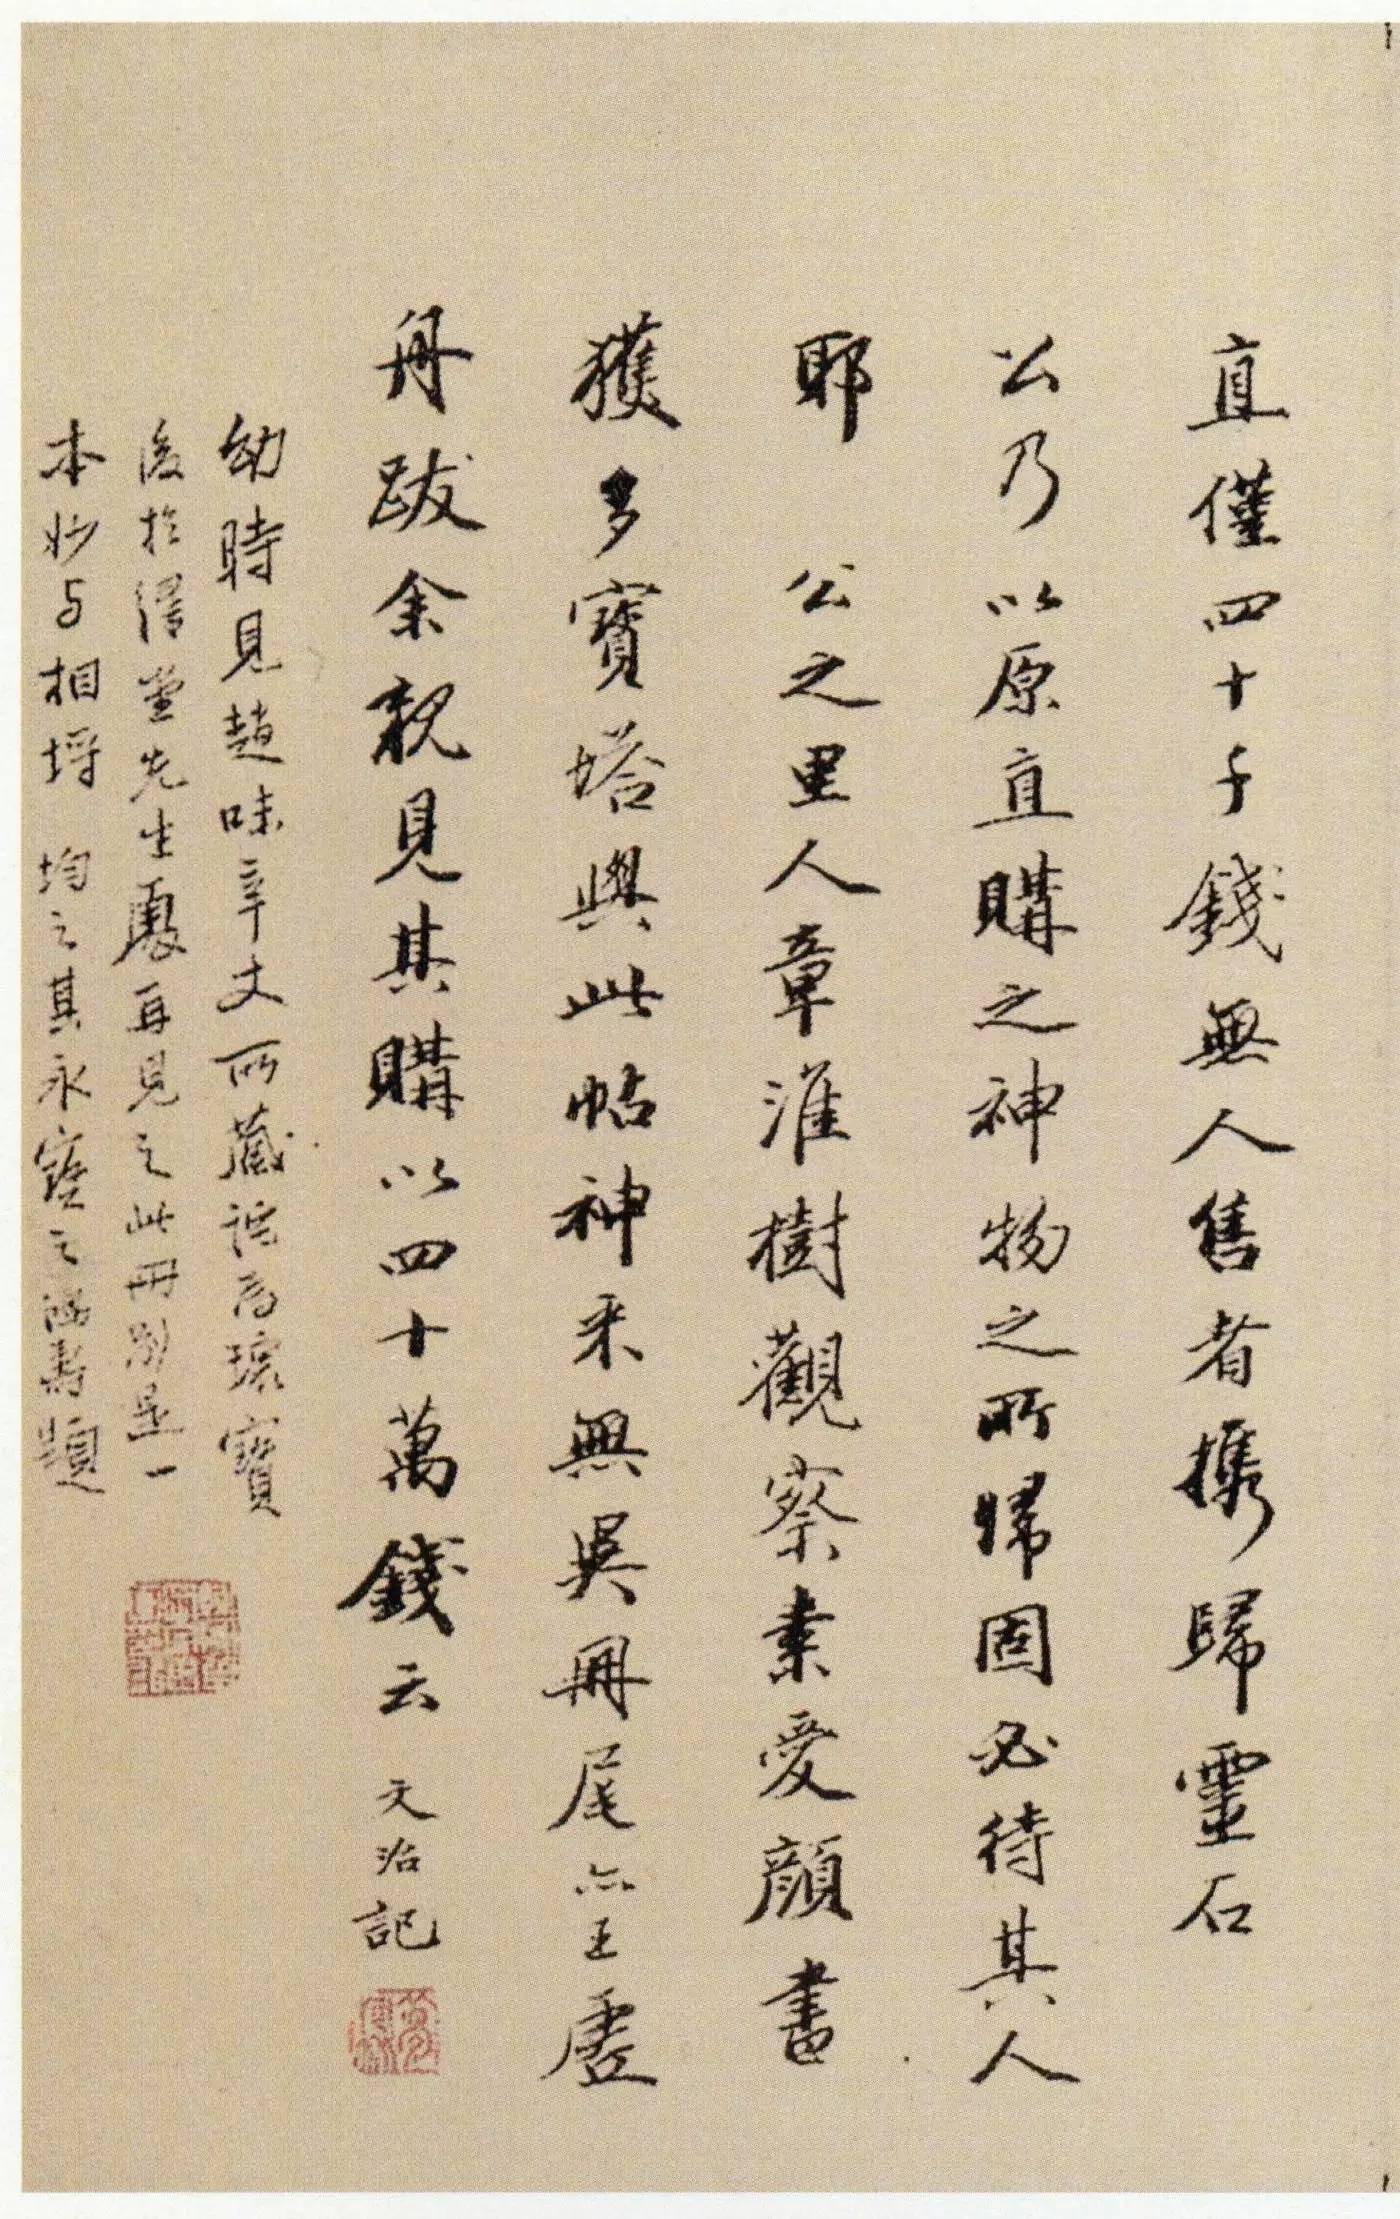 直僅四十千錢無人售者攜歸靈石
公乃以原直購之神物之所歸固必待其人
耶　公之里人章淮樹觀察素愛顏書
獲多寶塔與此帖神采無異冊尾亦王虛
舟跋余親見其購以四十萬錢云　文治記
幼時見趙味辛丈所藏詫為瓌寶
後於得堂先生處再見之此冊別是一
本妙與相埒　均之其永寶之　題